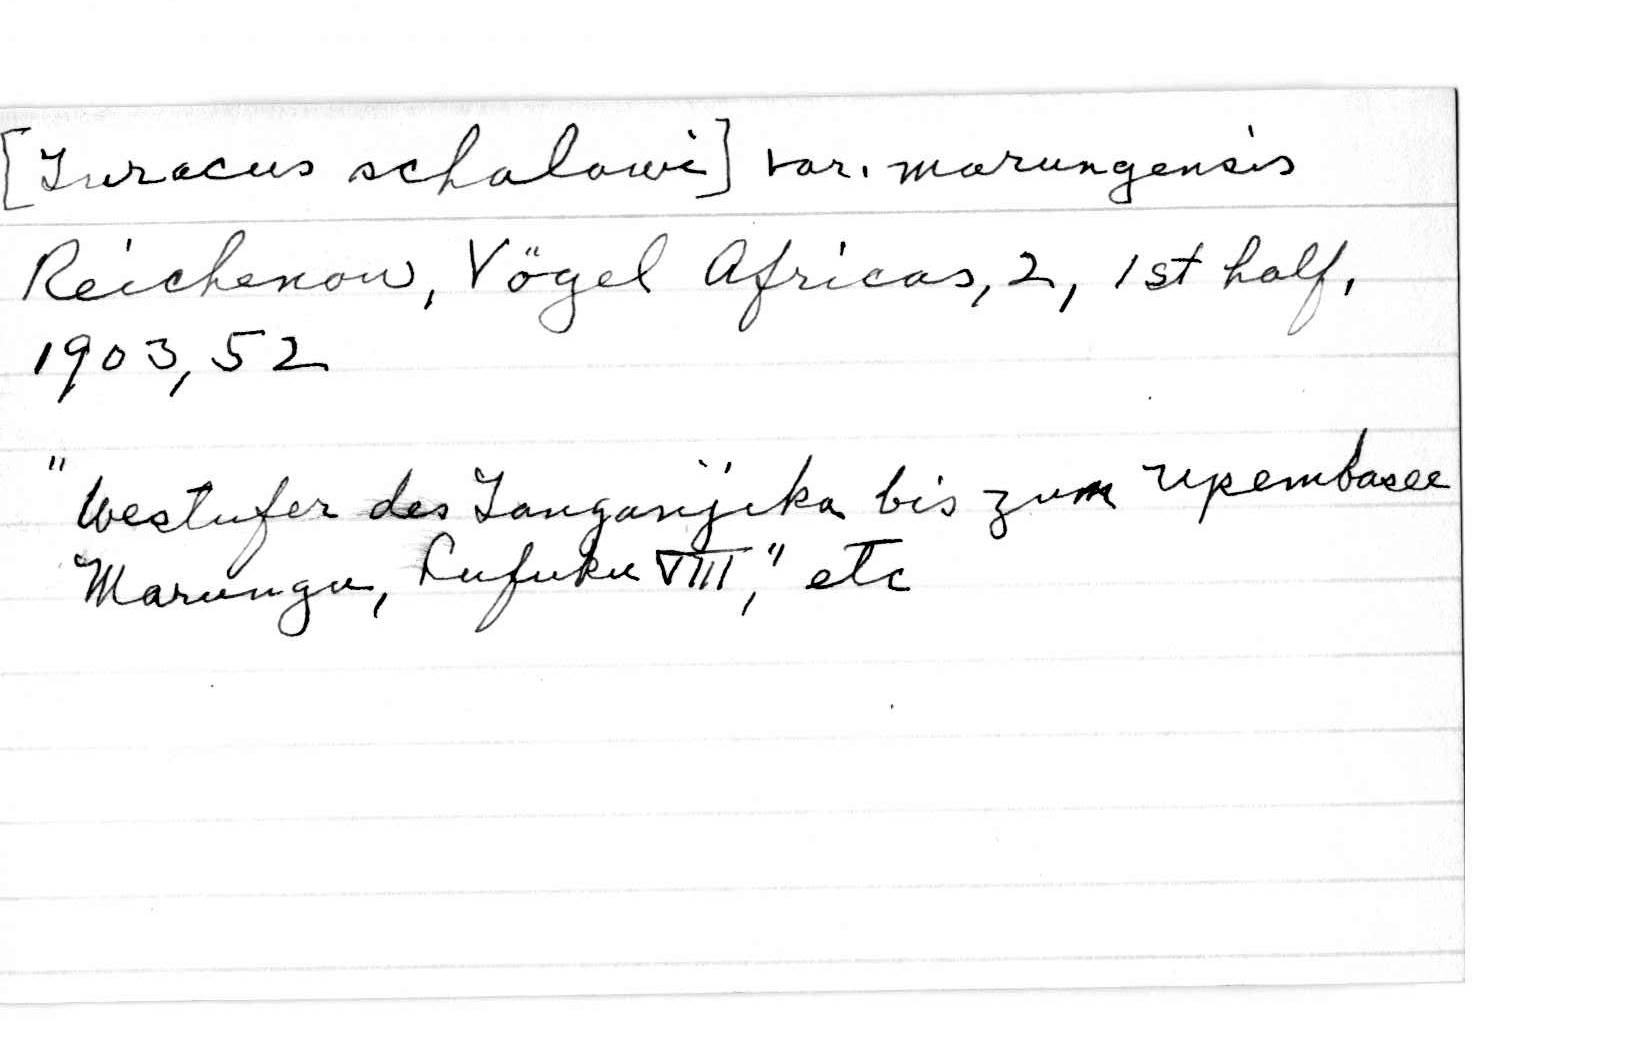 [Turacus schalowi] var. marungensis
Reichenow, Vögel Africas, 2, 1st half,
1903, 52
"Westufer des Tanganjika bis zum Upembasee
Marungu, Lufuku VIII," etc